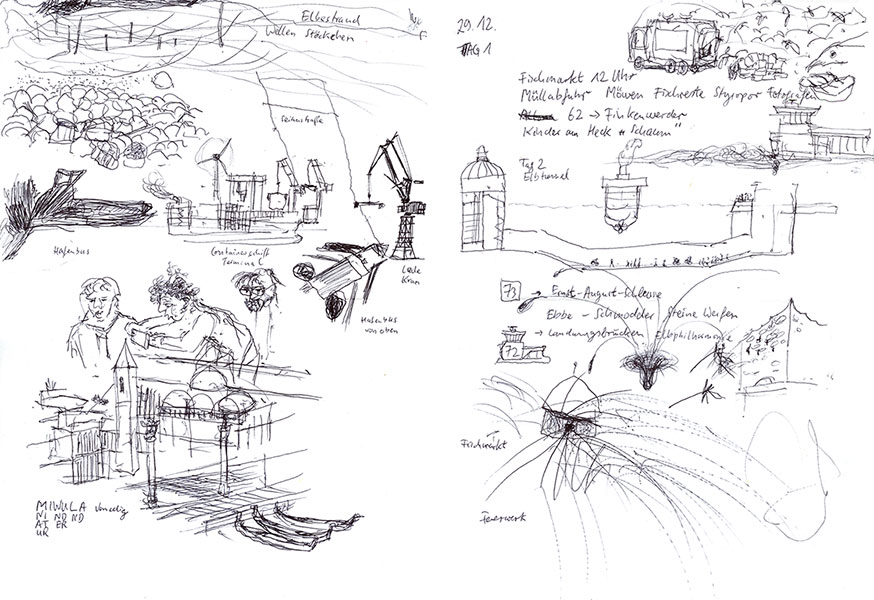 Elbestrand
Wellen Stöckchen
Seilmstraße
Hafenbus
Containerschiff
Terminal
Lade
Kran
Hafenbus
von oben
MIWULA Venedig
NI ND ND
AT ER
UR
29.12.
TAG 1
Fischmarkt 12 Uhr
Müllabfuhr Möwen Fischreste Styropor Fotografen
62 → Finkenwerder
Kinder am Heck "Schaum"
Tag 2
Elbtunnel
73 → Ernst-August-Schleuse
Ebbe - Schmodder Steine Werfen
72 → Landungsbrücken Elbphilharmonie
Fischmarkt
Feuerwerk